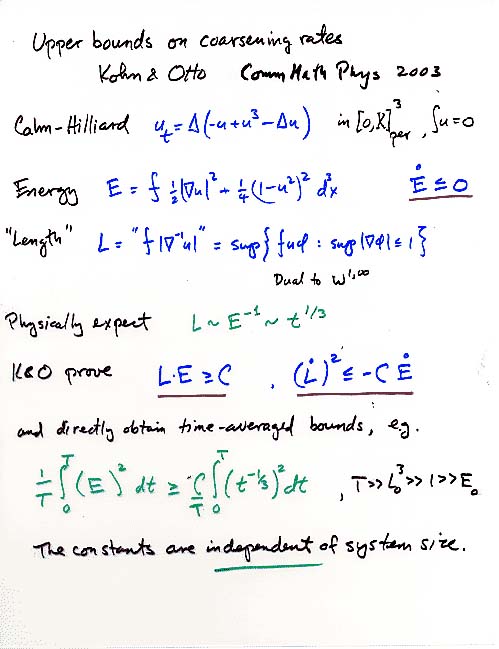 Upper bounds on coarsening rates
Kohn & Otto Comm Math Phys 2003
Cahn-Hilliard u_t = Δ(-u+u³-Δu) in [0,X]³_per, ∫u=0
Energy E = ⨍ ½|∇u|² + ¼(1-u²)² d³x Ė ≤ 0
"Length" L = "⨍|∇⁻¹u|" = sup{⨍uφ : sup|∇φ| ≤ 1}
Dual to W^{1,∞}
Physically expect L ~ E⁻¹ ~ t^{1/3}
K&O prove L·E ≥ C , (L̇)² ≤ -C Ė
and directly obtain time-averaged bounds, e.g.
1/T ∫₀ᵀ (E)² dt ≥ C/T ∫₀ᵀ (t^{-1/3})² dt , T >> L₀³ >> 1 >> E₀
The constants are independent of system size.